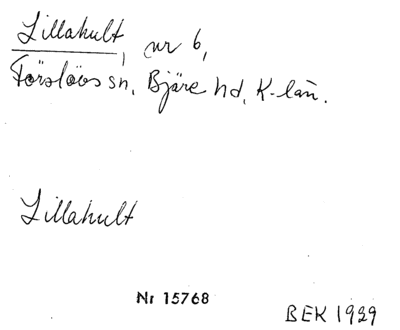 Lillahult, nr 6,
Förslövs sn, Bjäre hd, K-län.
Lillahult
Nr 15768
BEK 1929